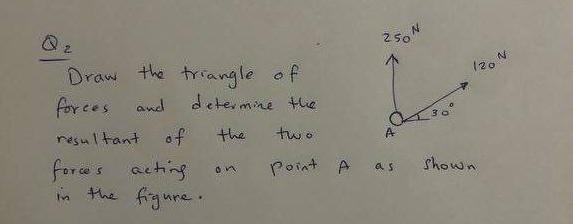 Q2
250 N
120 N
Draw the triangle of
forces and determine the
30°
A
resultant of the two
forces acting on point A as shown
in the figure.